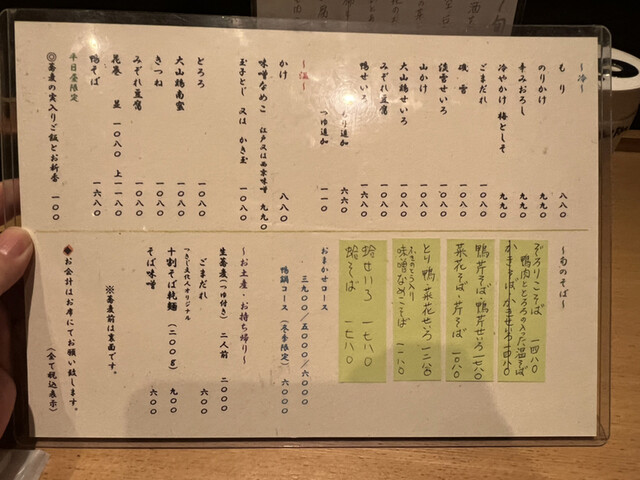 ～冷～
もり 八八〇
のりかけ 九九〇
辛みおろし 九九〇
冷やかけ 梅としそ 九九〇
ごまだれ 一一〇〇
磯雪
淡雪せいろ
山かけ
大山鶏せいろ
みぞれ豆腐
鴨せいろ 一六八〇
もり追加 六六〇
つゆ追加 一一〇
～温～
かけ 八八〇
味噌なめこ 江戸又は西京味噌 九九〇
玉子とじ 又は かき玉
とろろ 一〇八〇
大山鶏南蛮 一〇八〇
きつね 一〇八〇
みぞれ豆腐 一〇八〇
花巻 並 一〇八〇 上 一一八〇
鴨そば 一六八〇
平日昼限定
◎蕎麦の実入りご飯とお新香 一〇〇
～旬のそば～
ぞろりこそば 一四八〇
鴨肉ととろろの入った温そば
かきそば・かきせいろ 一四八〇
鴨芹そば・鴨芹せいろ 一七八〇
菜花そば・芹そば 一〇八〇
とり鴨菜花せいろ 一二八〇
ふきのとう入り
味噌なめこそば 一一八〇
蛤せいろ 一七八〇
蛤そば 一七八〇
おまかせコース
三九〇〇／五〇〇〇／六〇〇〇
鴨鍋コース（冬季限定） 六〇〇〇
～お土産・お持ち帰り～
生蕎麦（つゆ付き）二人前 二〇〇〇
ごまだれ 六〇〇
つきじ文化人オリジナル
十割そば乾麺（二〇〇g） 九〇〇
そば味噌 六〇〇
※蕎麦前は裏面です。
お会計はお席にてお願い致します。
（全て税込表示）